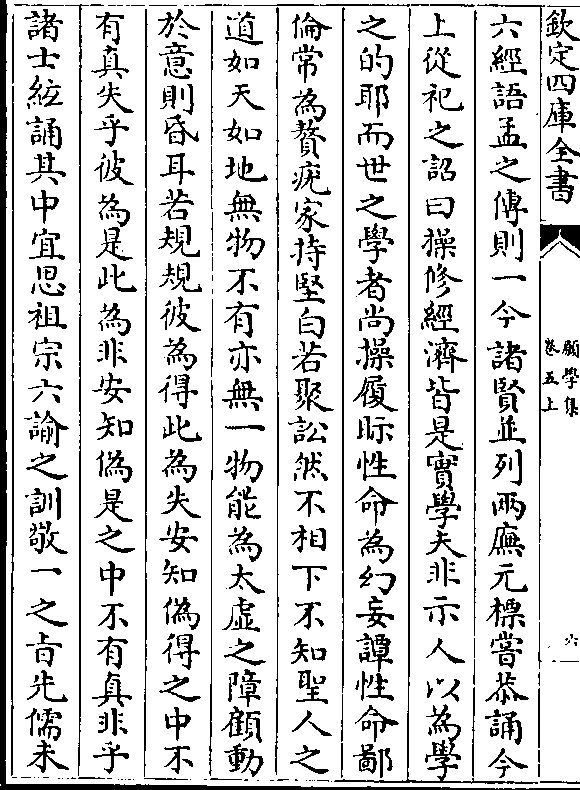 欽定四庫全書
願學集
卷五上
六
六經語孟之傳則一今諸賢並列兩廡元標嘗恭誦今
上從祀之詔曰操修經濟皆是實學夫非示人以為學
之的耶而世之學者尚操履眎性命為幻妄譚性命鄙
倫常為贅疣家持堅白若聚訟然不相下不知聖人之
道如天如地無物不有亦無一物能為太虛之障顧動
於意則昏耳若規規彼為得此為失安知偽得之中不
有真失乎彼為是此為非安知偽是之中不有真非乎
諸士絃誦其中宜思祖宗六諭之訓敬一之㫖先儒未